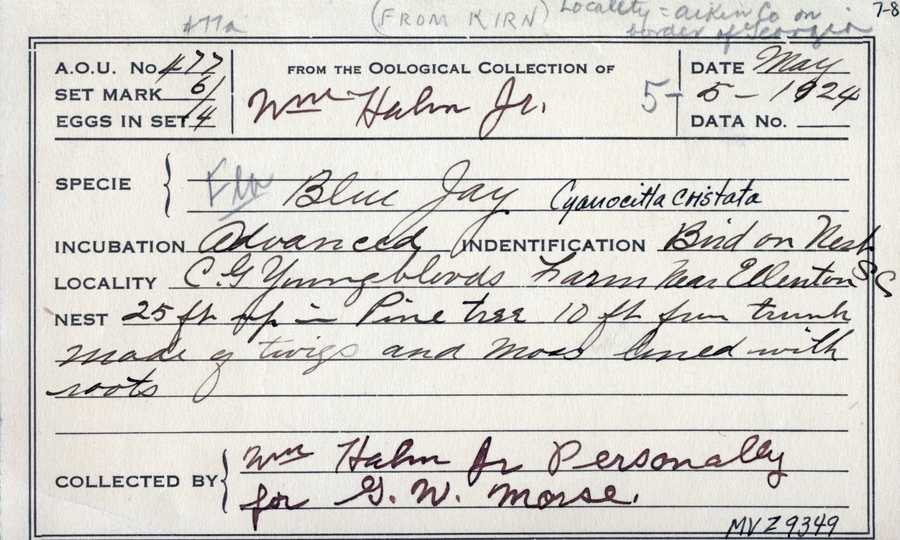 #77a (FROM KIRN) Locality = Aiken Co on 7-8
border of Georgia
A.O.U. No. 477 FROM THE OOLOGICAL COLLECTION OF DATE May
SET MARK 6/ Wm Hahn Jr. 5- 5 - 1924
EGGS IN SET 4 DATA No.
SPECIE Fla Blue Jay Cyanocitta cristata
INCUBATION Advanced IDENTIFICATION Bird on Nest
LOCALITY C.G Youngbloods Farm Near Ellenton SC
NEST 25 ft up in Pine tree 10 ft from trunk
made of twigs and moss lined with
roots
COLLECTED BY Wm Hahn Jr Personally
for G. W. Morse.
MVZ 9349